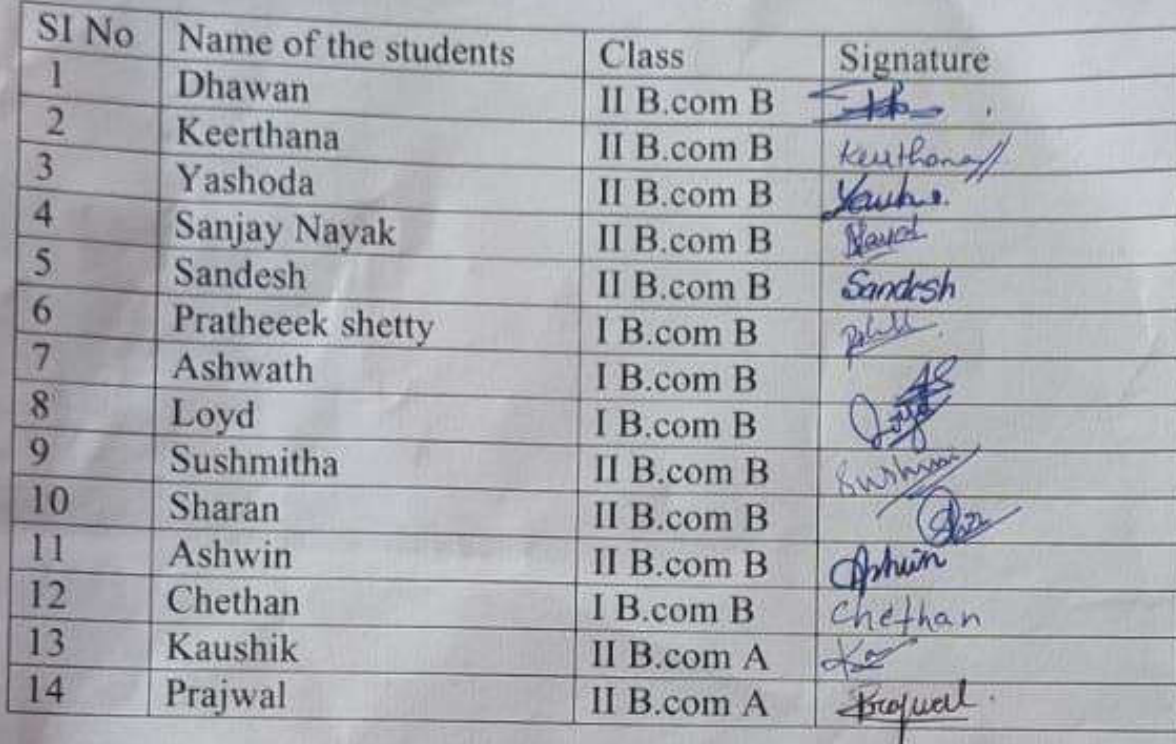 SI No Name of the students Class Signature
1 Dhawan II B.com B
2 Keerthana II B.com B Keerthana
3 Yashoda II B.com B
4 Sanjay Nayak II B.com B Nayak
5 Sandesh II B.com B Sandesh
6 Pratheeek shetty I B.com B
7 Ashwath I B.com B
8 Loyd I B.com B Loyd
9 Sushmitha II B.com B
10 Sharan II B.com B
11 Ashwin II B.com B Ashwin
12 Chethan I B.com B Chethan
13 Kaushik II B.com A
14 Prajwal II B.com A Prajwal